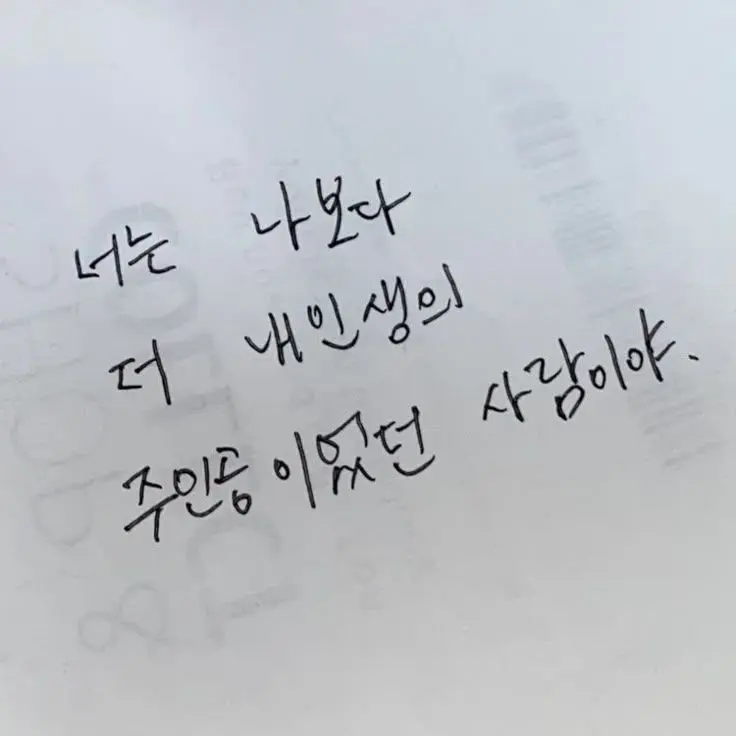 너는 나보다
더 내인생의
주인공이었던 사람이야.